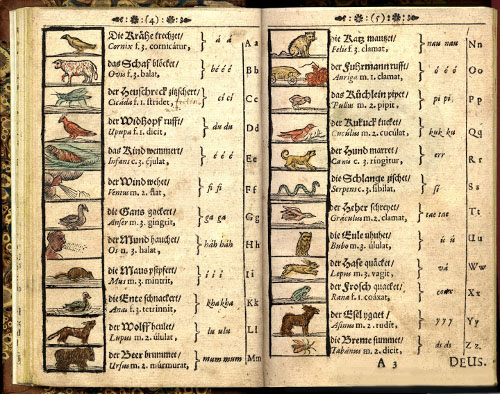 (4)
Die Krähe krechzet/
Cornix f. 3. cornicatur, á á Aa
das Schaf blöcket/
Ovis f. 3. balat, bééé Bb
der Heuschreck zitschert/
Cicáda f. 1. stridet, ci ci Cc
der Widhopf rufft/
Upupa f. 1. dicit, du du Dd
das Kind wemmert/
Infans c. 3. éjulat, é é é Ee
der Wind wehet/
Ventus m. 2. flat, fi fi Ff
die Gans gackert/
Anser m. 3. gingrit, ga ga Gg
der Mund hauchet/
Os n. 3. halat, háh háh Hh
die Maus pfipfert/
Mus m. 3. mintrit, í í í Ii
die Ente schnackert/
Anas f. 3. tetrinnit, kha kha Kk
der Wolff heulet/
Lupus m. 2. úlulat, lu ulu Ll
der Beer brummet/
Ursus m. 2. múrmurat, mum mum Mm
(5)
die Katz mautzet/
Felis f. 3. clamat, nau nau Nn
der Fuhrmann rufft/
Auriga m. 1. clamat, ó ó ó Oo
das Küchlein pipet/
Pullus m. 2. pipit, pi pi Pp
der Kukuck kucket/
Cucúlus m. 2. cucúlat, kuk ku Qq
der Hund marret/
Canis c. 3. ringitur, err Rr
die Schlange zischet/
Serpens c. 3. síbilat, si Ss
der Heher schreyet/
Gráculus m. 2. clamat, tae tae Tt
die Eule uhuhet/
Bubo m. 3. úlulat, ú ú Uu
der Hase quäcket/
Lepus m. 3. vagit, vá Ww
der Frosch quacket/
Rana f. 1. coáxat, coax Xx
der Esel ygaet/
Asinus m. 2. rudit, yyy Yy
die Breme summet/
Tabanus m. 2. dicit, ds ds Zz
A 3 DEUS.